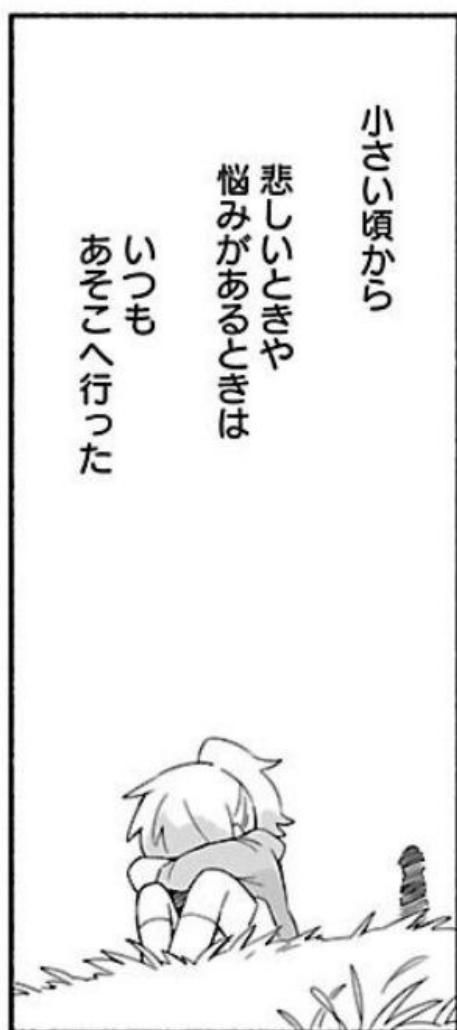 小さい頃から
悲しいときや
悩みがあるときは
いつも
あそこへ行った